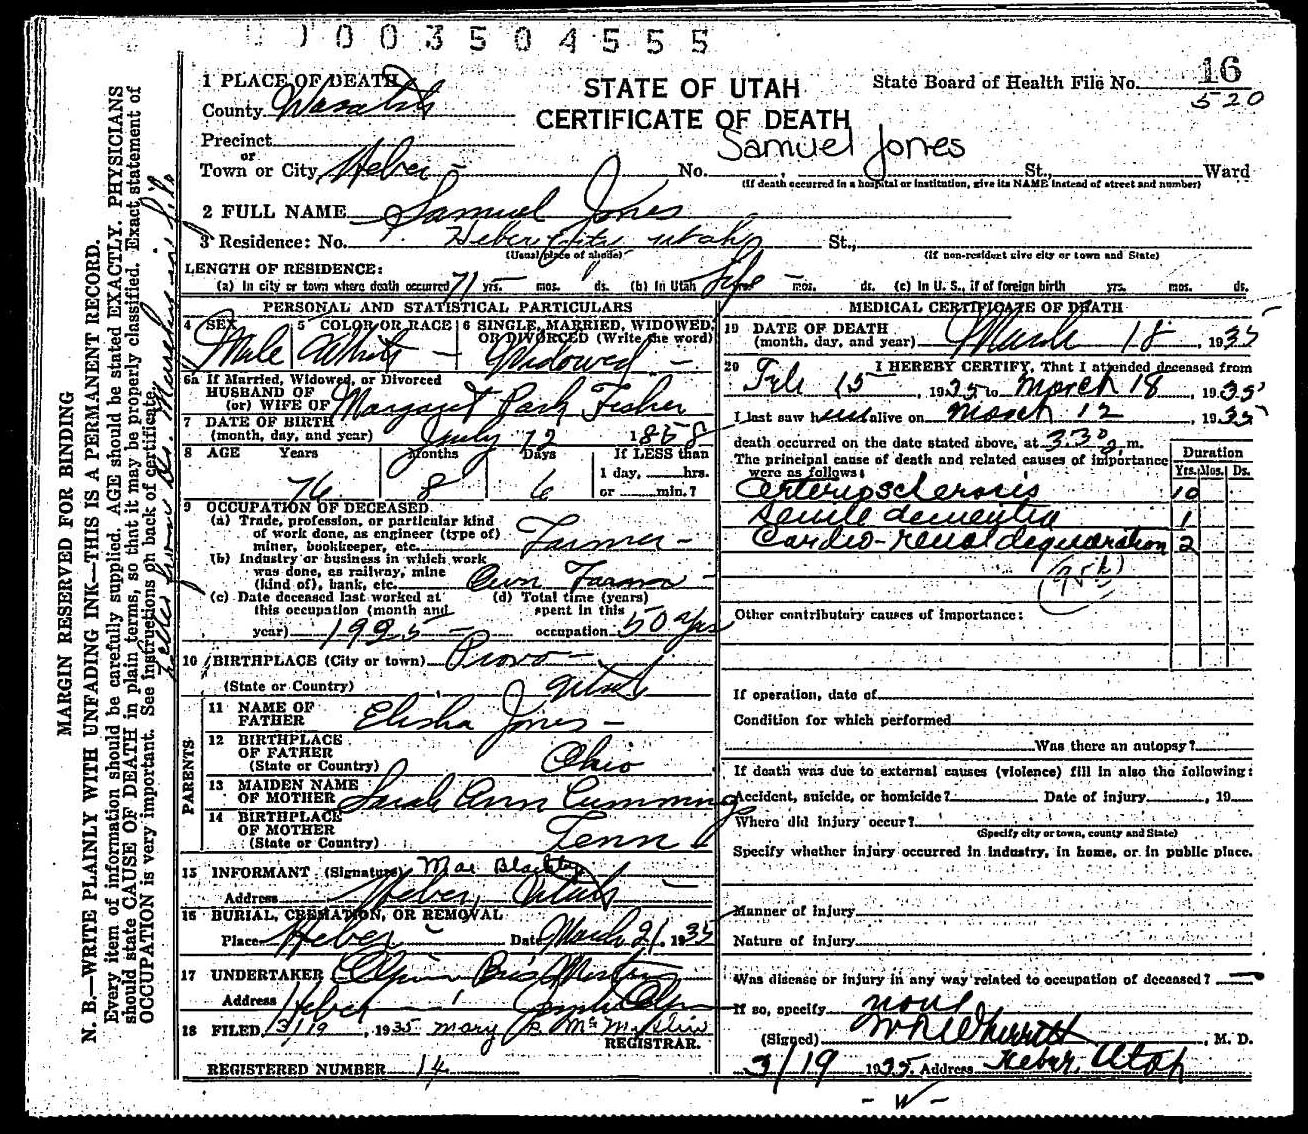 0003504555
16
520
1 PLACE OF DEATH
County Wasatch
STATE OF UTAH
CERTIFICATE OF DEATH
State Board of Health File No.
Precinct
or
Samuel Jones
Town or City Heber No. St., Ward
(If death occurred in a hospital or institution, give its NAME instead of street and number)
2 FULL NAME Samuel Jones
3 Residence: No. Heber City Utah St.,
(Usual place of abode) (If non-resident give city or town and State)
LENGTH OF RESIDENCE:
(a) In city or town where death occurred 71 yrs. mos. ds. (b) In Utah life yrs. mos. ds. (c) In U. S., if of foreign birth yrs. mos. ds.
PERSONAL AND STATISTICAL PARTICULARS
4 SEX 5 COLOR OR RACE 6 SINGLE, MARRIED, WIDOWED, OR DIVORCED (Write the word)
Male White Widowed
6a If Married, Widowed, or Divorced
HUSBAND OF
(or) WIFE OF Margaret Park Fisher
7 DATE OF BIRTH
(month, day, and year) July 12 1858
8 AGE Years Months Days If LESS than
1 day, hrs.
76 8 6 or min.?
9 OCCUPATION OF DECEASED
(a) Trade, profession, or particular kind
of work done, as engineer (type of)
miner, bookkeeper, etc. Farmer
(b) Industry or business in which work
was done, as railway, mine
(kind of), bank, etc. Own Farm
(c) Date deceased last worked at (d) Total time (years)
this occupation (month and spent in this
year) 1925 occupation 50 yrs
10 BIRTHPLACE (City or town) Provo
(State or Country) Utah
PARENTS
11 NAME OF
FATHER Elisha Jones
12 BIRTHPLACE
OF FATHER
(State or Country) Ohio
13 MAIDEN NAME
OF MOTHER Sarah Ann Cummings
14 BIRTHPLACE
OF MOTHER
(State or Country) Tenn
15 INFORMANT (Signature) Mae
Address Heber, Utah
16 BURIAL, CREMATION, OR REMOVAL
Place Heber Date March 21, 1935
17 UNDERTAKER Olpin Bros
Address Heber
18 FILED 3/19, 1935 Mary B.
REGISTRAR.
REGISTERED NUMBER 14
MEDICAL CERTIFICATE OF DEATH
19 DATE OF DEATH
(month, day, and year) March 18, 1935
20 I HEREBY CERTIFY, That I attended deceased from
15, 1935 to March 18, 1935
I last saw h alive on March 12, 1935
death occurred on the date stated above, at 3:30 m.
The principal cause of death and related causes of importance
were as follows:
Duration
Yrs. Mos. Ds.
Arteriosclerosis 10
Senile dementia 1
Cardio-renal degeneration 2
Other contributory causes of importance:
If operation, date of
Condition for which performed
Was there an autopsy?
If death was due to external causes (violence) fill in also the following:
Accident, suicide, or homicide? Date of injury, 19
Where did injury occur?
(Specify city or town, county and State)
Specify whether injury occurred in industry, in home, or in public place.
Manner of injury
Nature of injury
Was disease or injury in any way related to occupation of deceased?
If so, specify none
(Signed) , M. D.
3/19 1935. Address Heber, Utah
- W -
MARGIN RESERVED FOR BINDING
N. B.—WRITE PLAINLY WITH UNFADING INK—THIS IS A PERMANENT RECORD.
Every item of information should be carefully supplied. AGE should be stated EXACTLY. PHYSICIANS
should state CAUSE OF DEATH in plain terms, so that it may be properly classified. Exact statement of
OCCUPATION is very important. See instructions on back of certificate.